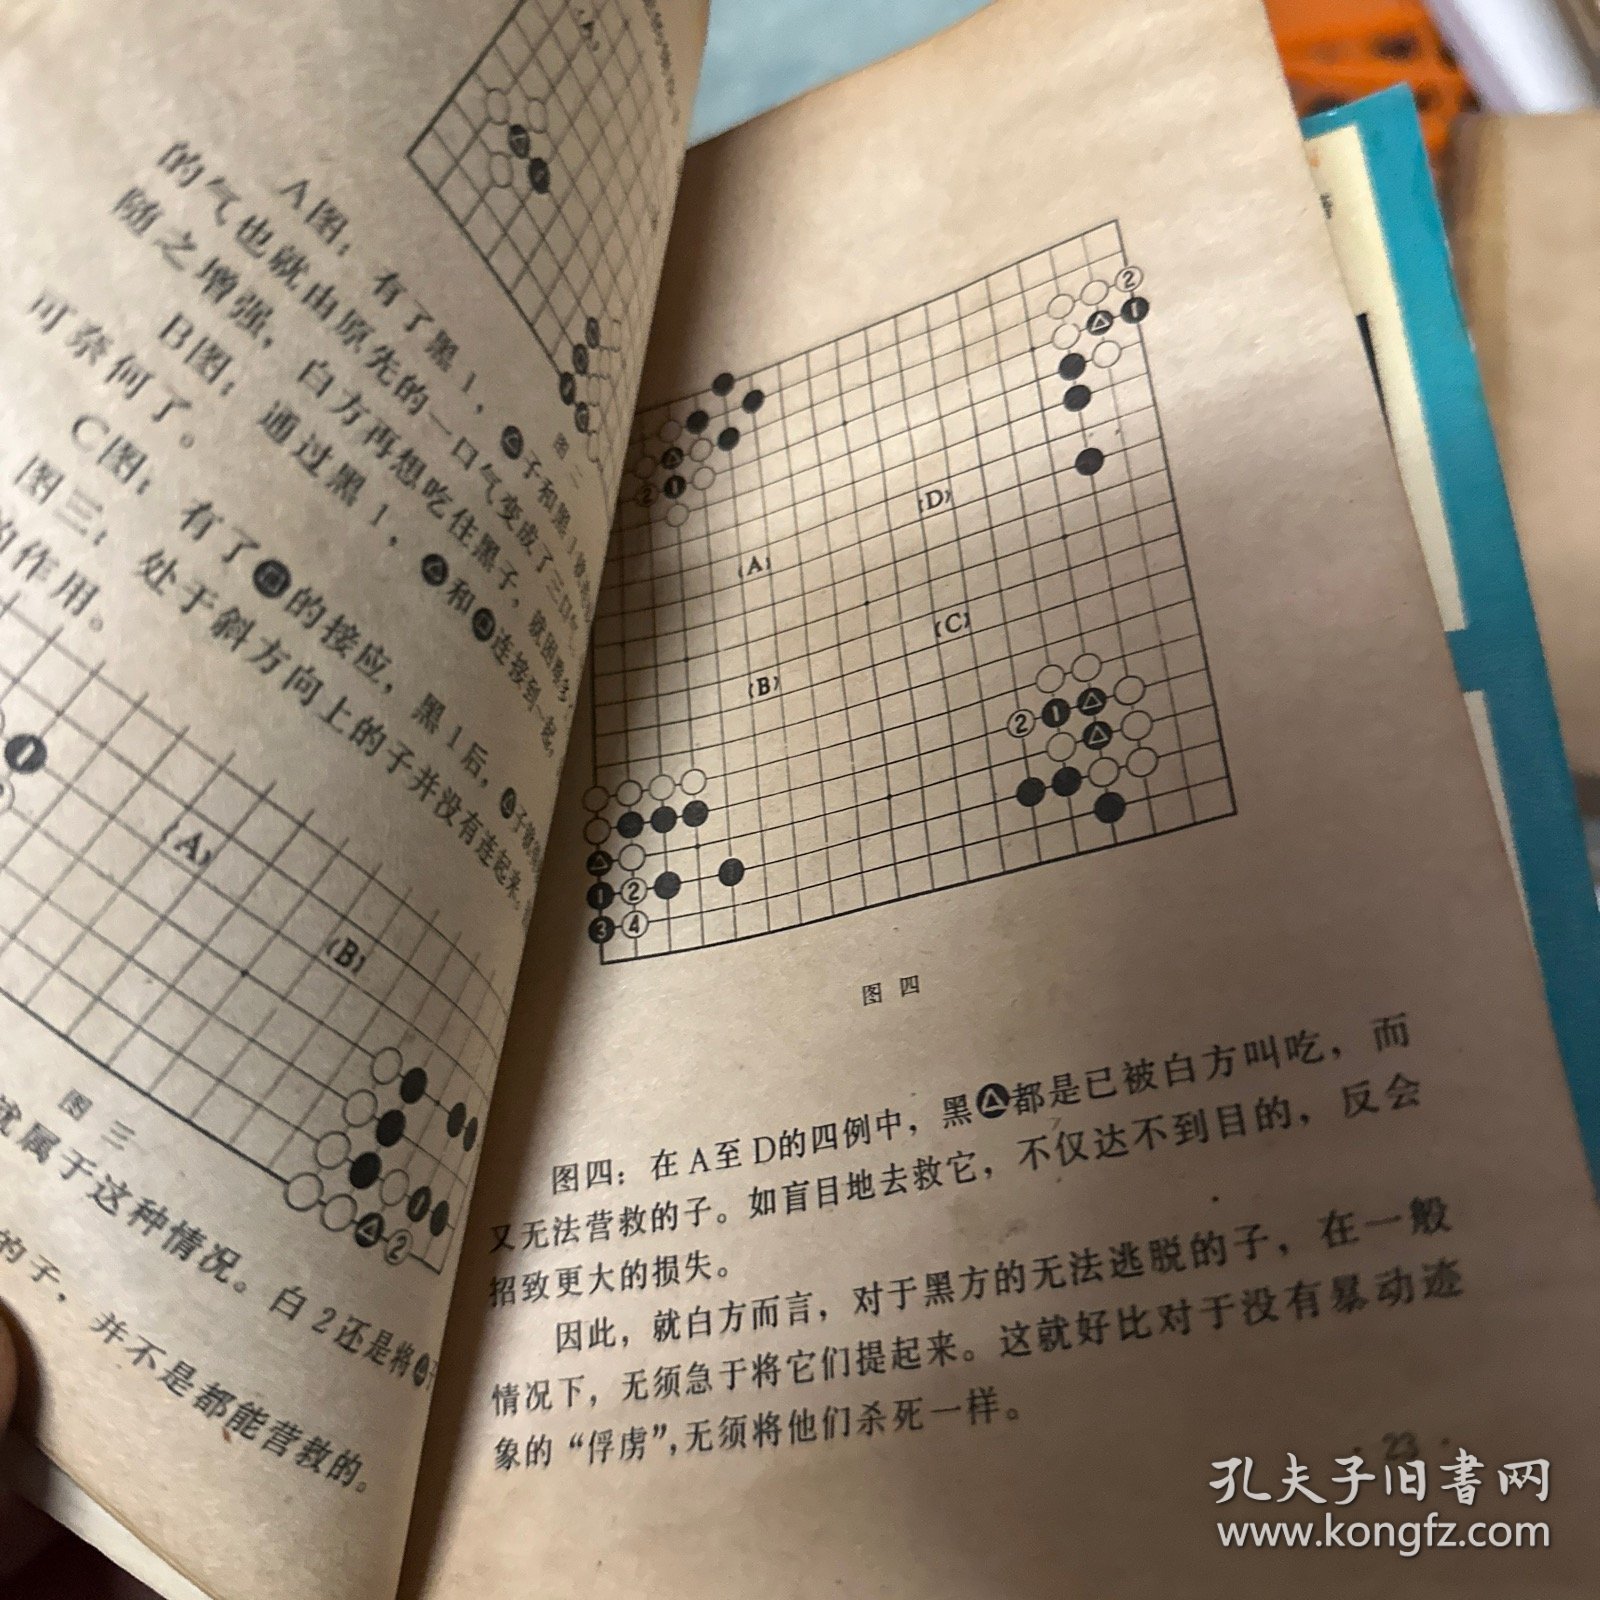 A图：有了黑1，子和黑1
的气也就由原先的一口气变成了三口气
随之增强，白方再想吃住黑子，就困难
B图：通过黑1，和连接到一起，
可奈何了。
C图：有了的接应，黑1后，子
图三：处于斜方向上的子并没有连起来，
的作用。
1
(A)
(B)
1
2
图三
就属于这种情况。白2还是将
的子，并不是都能营救的。
2
1
2
1
(D)
(A)
(C)
(B)
2
1
1
2
3
4
图四
图四：在A至D的四例中，黑都是已被白方叫吃，而
又无法营救的子。如盲目地去救它，不仅达不到目的，反会
招致更大的损失。
因此，就白方而言，对于黑方的无法逃脱的子，在一般
情况下，无须急于将它们提起来。这就好比对于没有暴动迹
象的“俘虏”，无须将他们杀死一样。
· 23 ·
孔夫子旧书网
www.kongfz.com